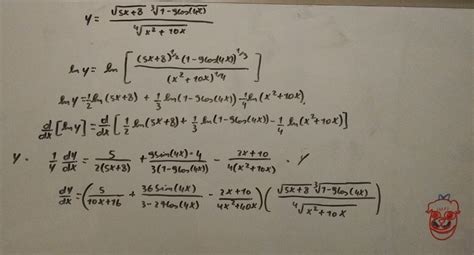 y = √(5x+8) ∛(1-9cos(4x)) / ∜(x²+10x)
ln y = ln [ (5x+8)^1/2 (1-9cos(4x))^1/3 / (x²+10x)^1/4 ]
ln y = 1/2 ln(5x+8) + 1/3 ln(1-9cos(4x)) - 1/4 ln(x²+10x)
d/dx [ln y] = d/dx [ 1/2 ln(5x+8) + 1/3 ln(1-9cos(4x)) - 1/4 ln(x²+10x) ]
y · 1/y dy/dx = 5/2(5x+8) + 9sin(4x)·4/3(1-9cos(4x)) - 2x+10/4(x²+10x) · y
dy/dx = ( 5/10x+16 + 36sin(4x)/3-29cos(4x) - 2x+10/4x²+40x ) ( √(5x+8) ∛(1-9cos(4x)) / ∜(x²+10x) )